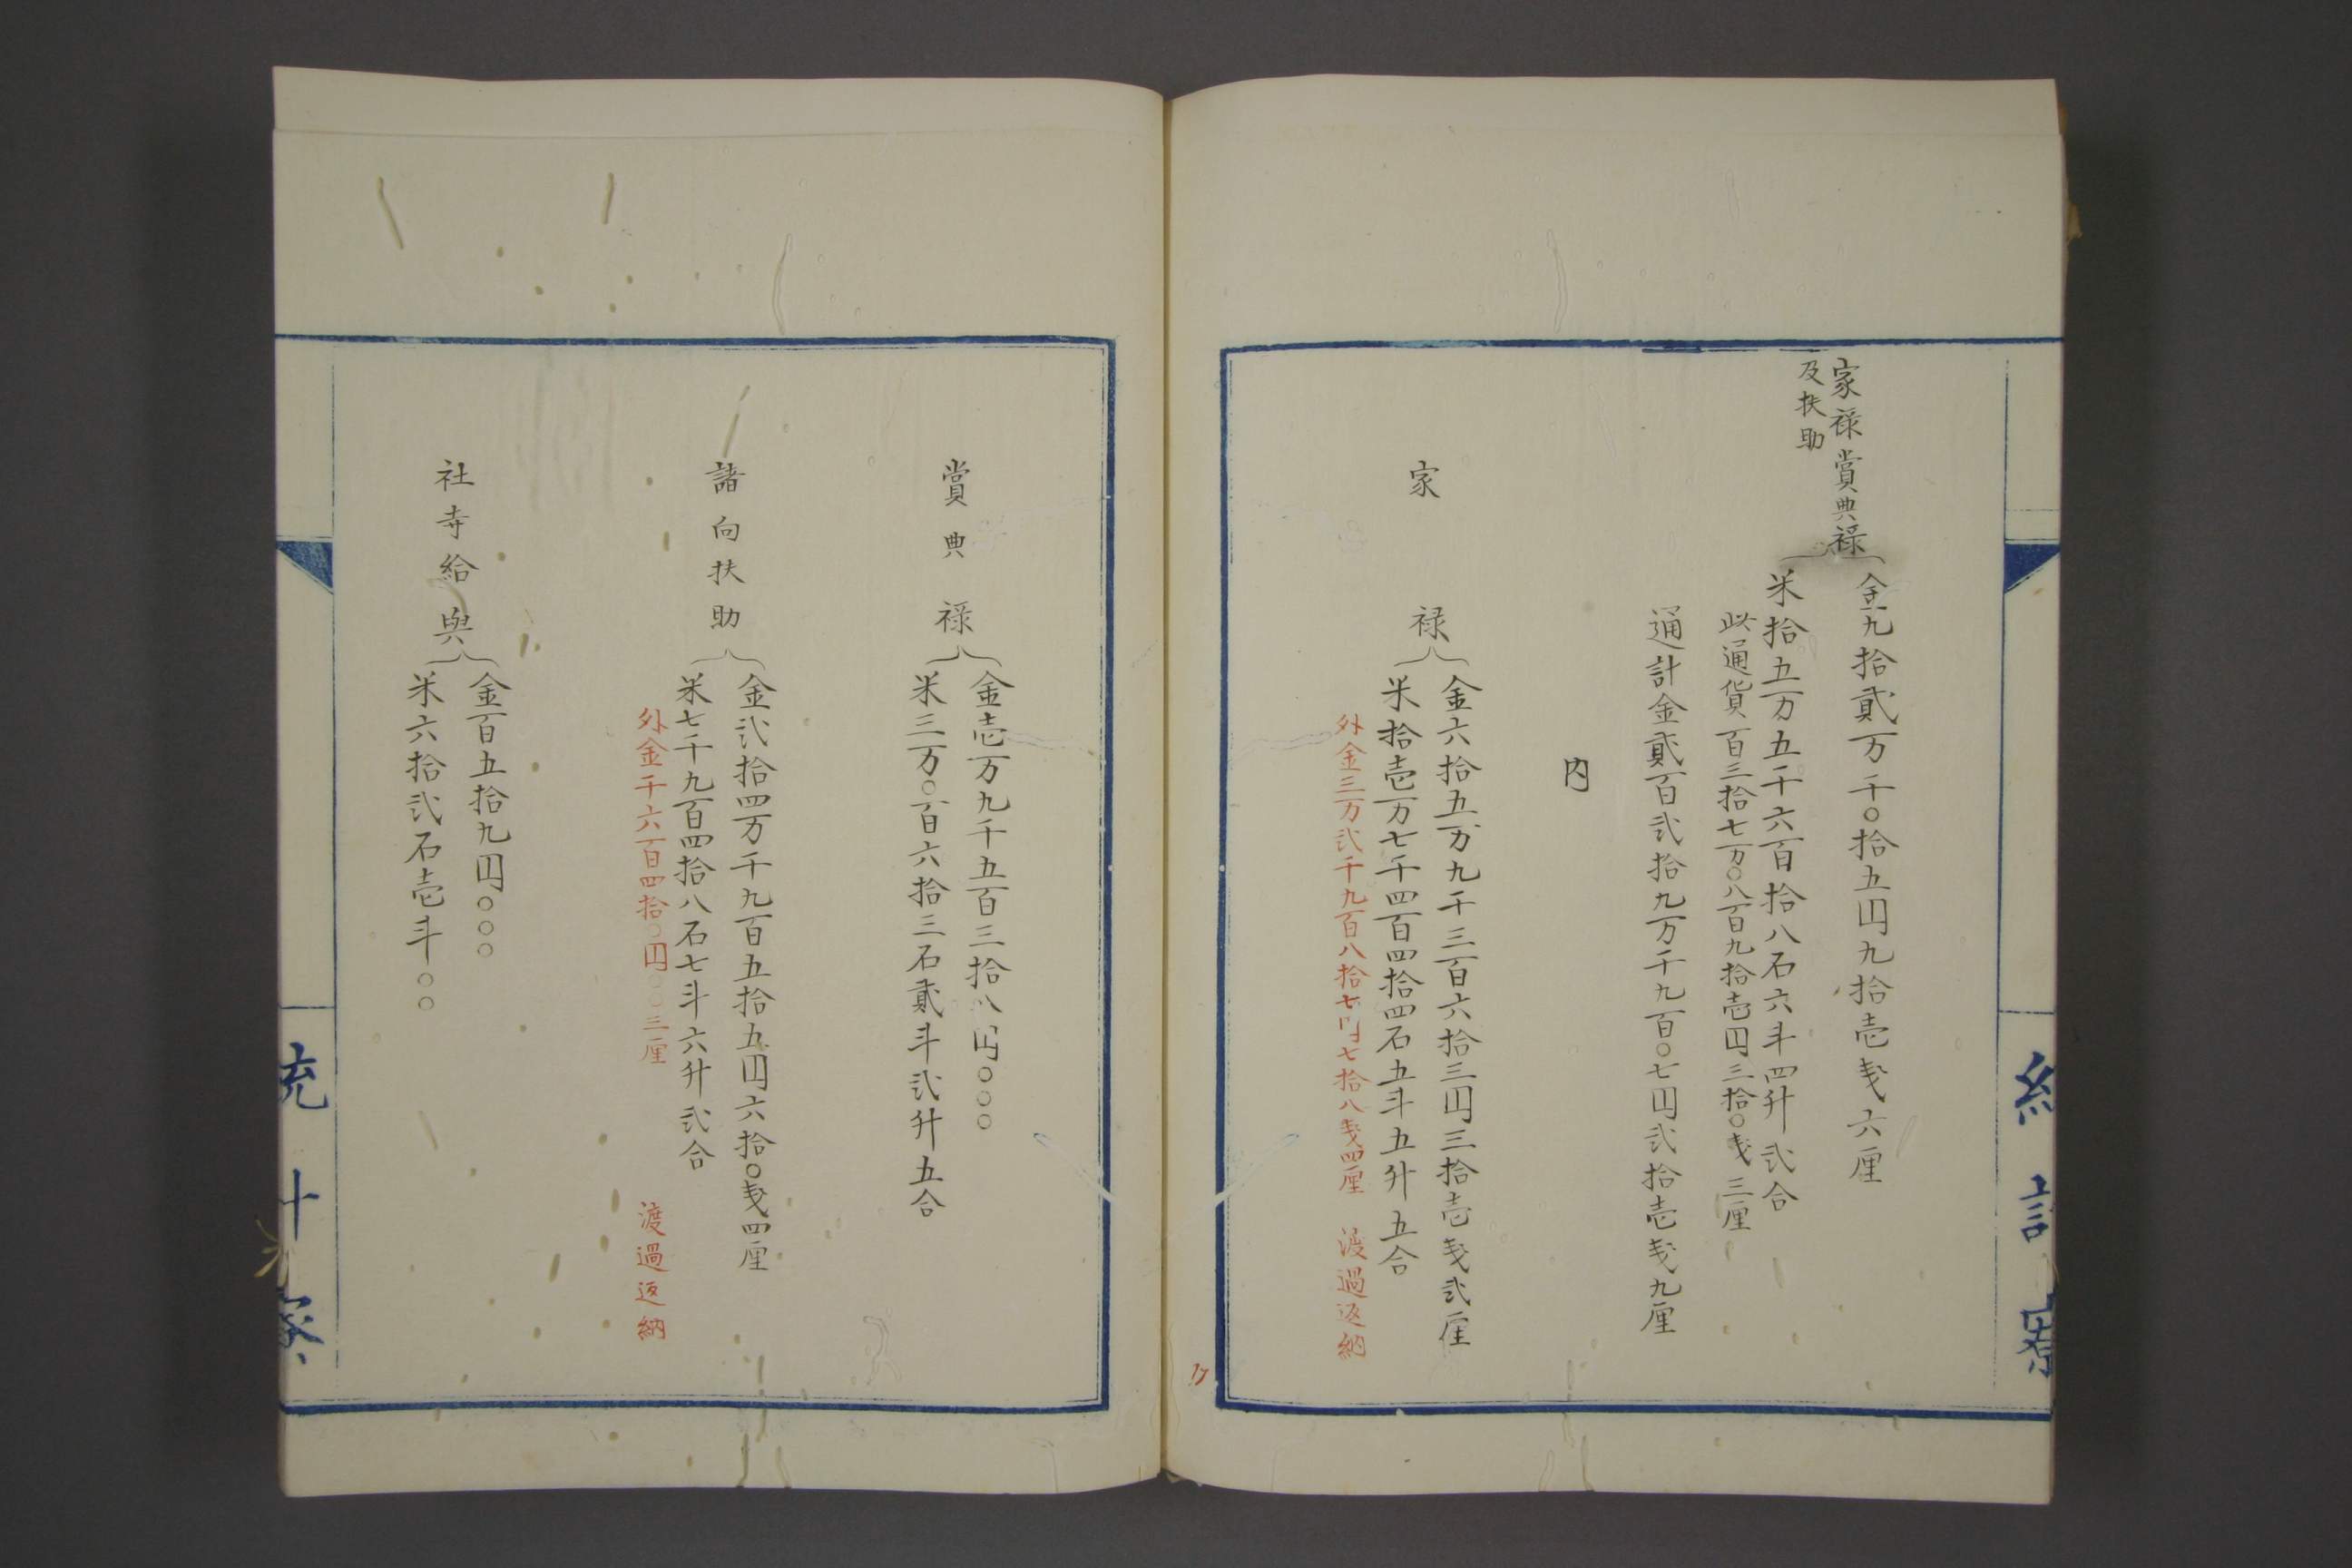 家禄賞典禄
及扶助
金九拾貳万千〇拾五円九拾壱戔六厘
米拾五万五千六百拾八石六斗四升弐合
此通貨百三拾七万〇八百九拾壱円三拾〇戔三厘
通計金貳百弐拾九万千九百〇七円弐拾壱戔九厘
内
家禄
金六拾五万九千三百六拾三円三拾壱戔弐厘
米拾壱万七千四百四拾四石五斗五升五合
外金三万弐千九百八拾七円七拾八戔四厘 渡過返納
17
賞典禄
金壱万九千五百三拾八円〇〇〇
米三万〇百六拾三石貳斗弐升五合
諸向扶助
金弐拾四万千九百五拾五円六拾〇戔四厘
米七千九百四拾八石七斗六升弐合
外金千六百四拾〇円〇〇三厘 渡過返納
社寺給與
金百五拾九円〇〇〇
米六拾弐石壱斗〇〇
統計寮